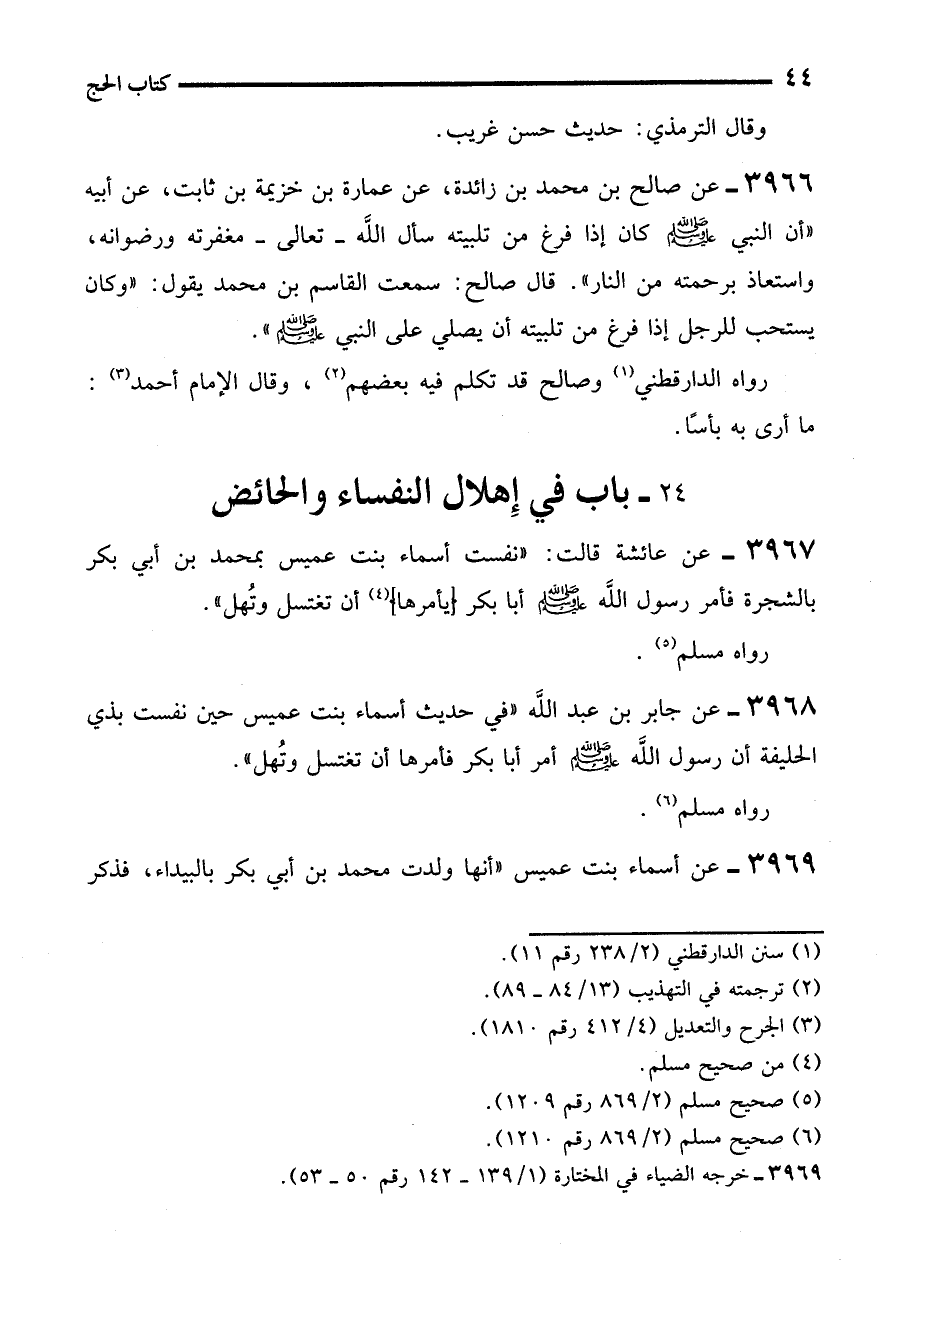 ٤٤ كتاب الحج
وقال الترمذي: حديث حسن غريب.
٣٩٦٦ ـ عن صالح بن محمد بن زائدة، عن عمارة بن خزيمة بن ثابت، عن أبيه
«أن النبي ﷺ كان إذا فرغ من تلبيته سأل اللَّه ـ تعالى ـ مغفرته ورضوانه،
واستعاذ برحمته من النار». قال صالح: سمعت القاسم بن محمد يقول: «وكان
يستحب للرجل إذا فرغ من تلبيته أن يصلي على النبي ﷺ».
رواه الدارقطني(١) وصالح قد تكلم فيه بعضهم(٢) ، وقال الإمام أحمد(٣) :
ما أرى به بأسًا.
٢٤ ـ باب في إهلال النفساء والحائض
٣٩٦٧ ـ عن عائشة قالت: «نفست أسماء بنت عميس بمحمد بن أبي بكر
بالشجرة فأمر رسول اللَّه ﷺ أبا بكر {يأمرها}(٤) أن تغتسل وتُهل».
رواه مسلم(٥) .
٣٩٦٨ ـ عن جابر بن عبد اللَّه «في حديث أسماء بنت عميس حين نفست بذي
الحليفة أن رسول اللَّه ﷺ أمر أبا بكر فأمرها أن تغتسل وتُهل».
رواه مسلم(٦) .
٣٩٦٩ ـ عن أسماء بنت عميس «أنها ولدت محمد بن أبي بكر بالبيداء، فذكر
(١) سنن الدارقطني (٢/ ٢٣٨ رقم ١١).
(٢) ترجمته في التهذيب (١٣/ ٨٤ ـ ٨٩).
(٣) الجرح والتعديل (٤/ ٤١٢ رقم ١٨١٠).
(٤) من صحيح مسلم.
(٥) صحيح مسلم (٢/ ٨٦٩ رقم ١٢٠٩).
(٦) صحيح مسلم (٢/ ٨٦٩ رقم ١٢١٠).
٣٩٦٩ ـ خرجه الضياء في المختارة (١/ ١٣٩ ـ ١٤٢ رقم ٥٠ ـ ٥٣).